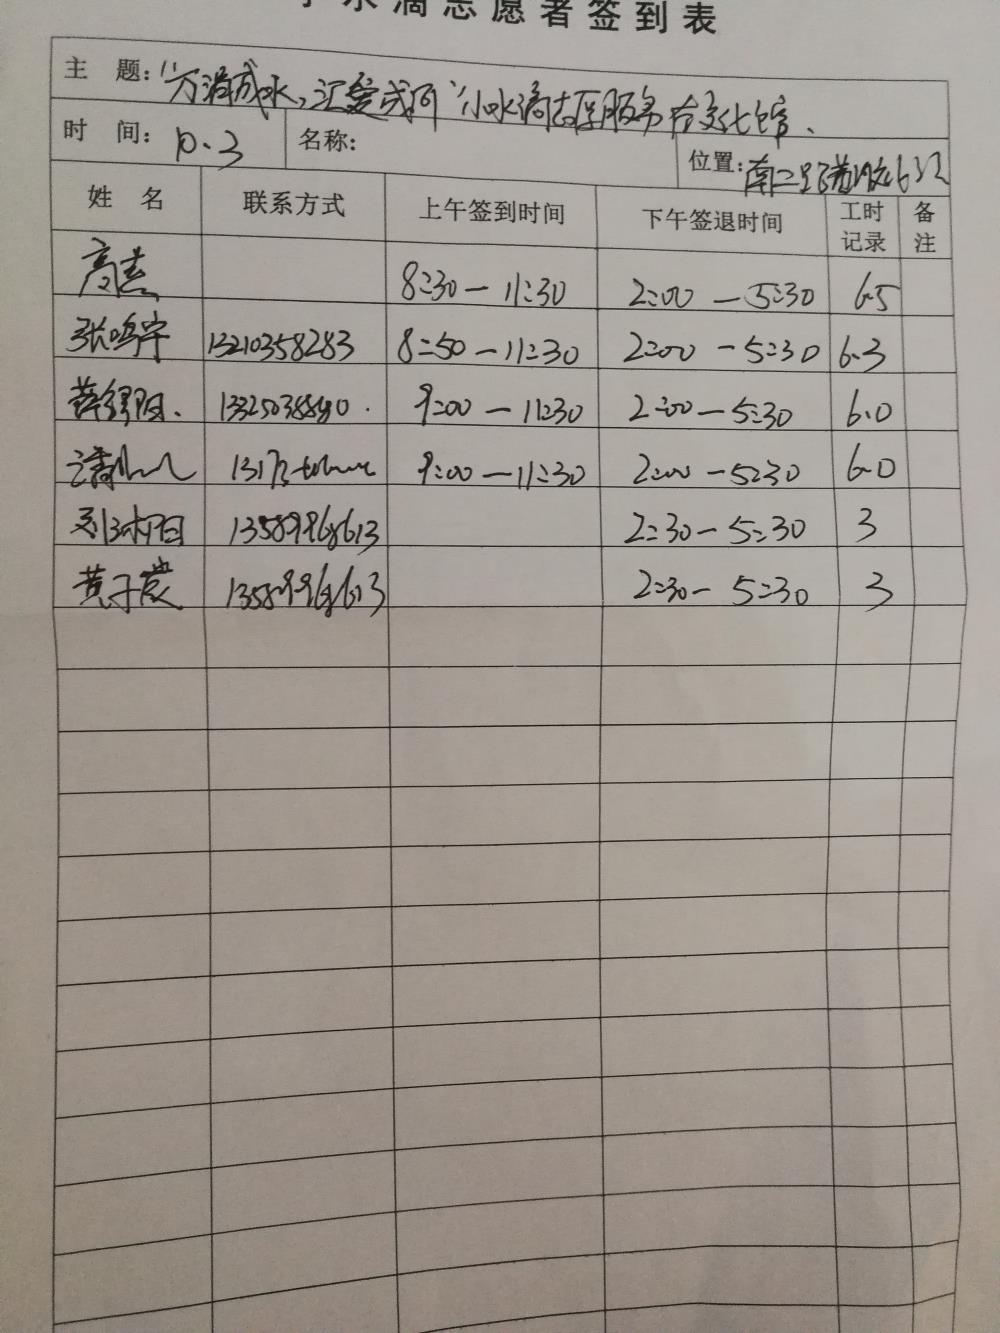 小水滴志愿者签到表
主 题：“万滴成水，汇爱成河”小水滴志愿服务 文化馆、
时 间：10.3 名称： 位置：南二路
姓 名 联系方式 上午签到时间 下午签退时间 工时记录 备注
高 8:30—11:30 2:00—5:30 6.5
张鸣宇 13210358283 8:50—11:30 2:00—5:30 6.3
薛 阳. 9:00—11:30 2:00—5:30 6.0
9:00—11:30 2:00—5:30 6.0
刘 阳 13589968613 2:30—5:30 3
黄子 13589968613 2:30—5:30 3